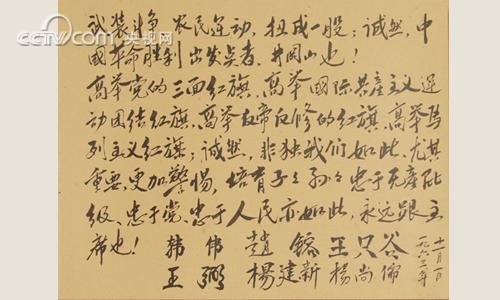 央视网
武装斗争 农民运动，扭成一股；诚然，中
國革命胜利出发点者，井冈山也！
高举党的三面红旗，高举國际共産主义运
动团结红旗，高举反帝反修的红旗，高举马
列主义红旗；诚然，非独我们如此，尤其
重要，更加警惕，培育子々孙々忠于无産阶
级、忠于党、忠于人民亦如此，永远跟主
席也！
韩伟 趙镕 王只谷
王弼 楊建新 楊尚儒
一九六三年
十一月一日